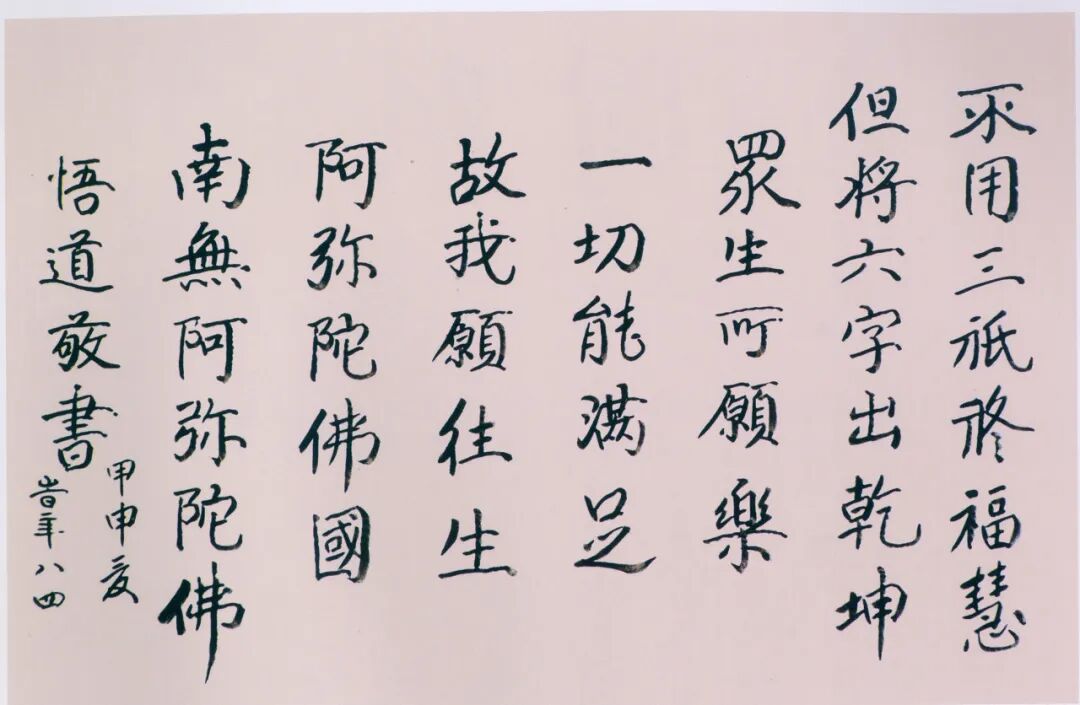 不用三祇修福慧
但將六字出乾坤
眾生所願樂
一切能滿足
故我願往生
阿弥陀佛國
南無阿弥陀佛
悟道敬書
甲申夏
時年八四